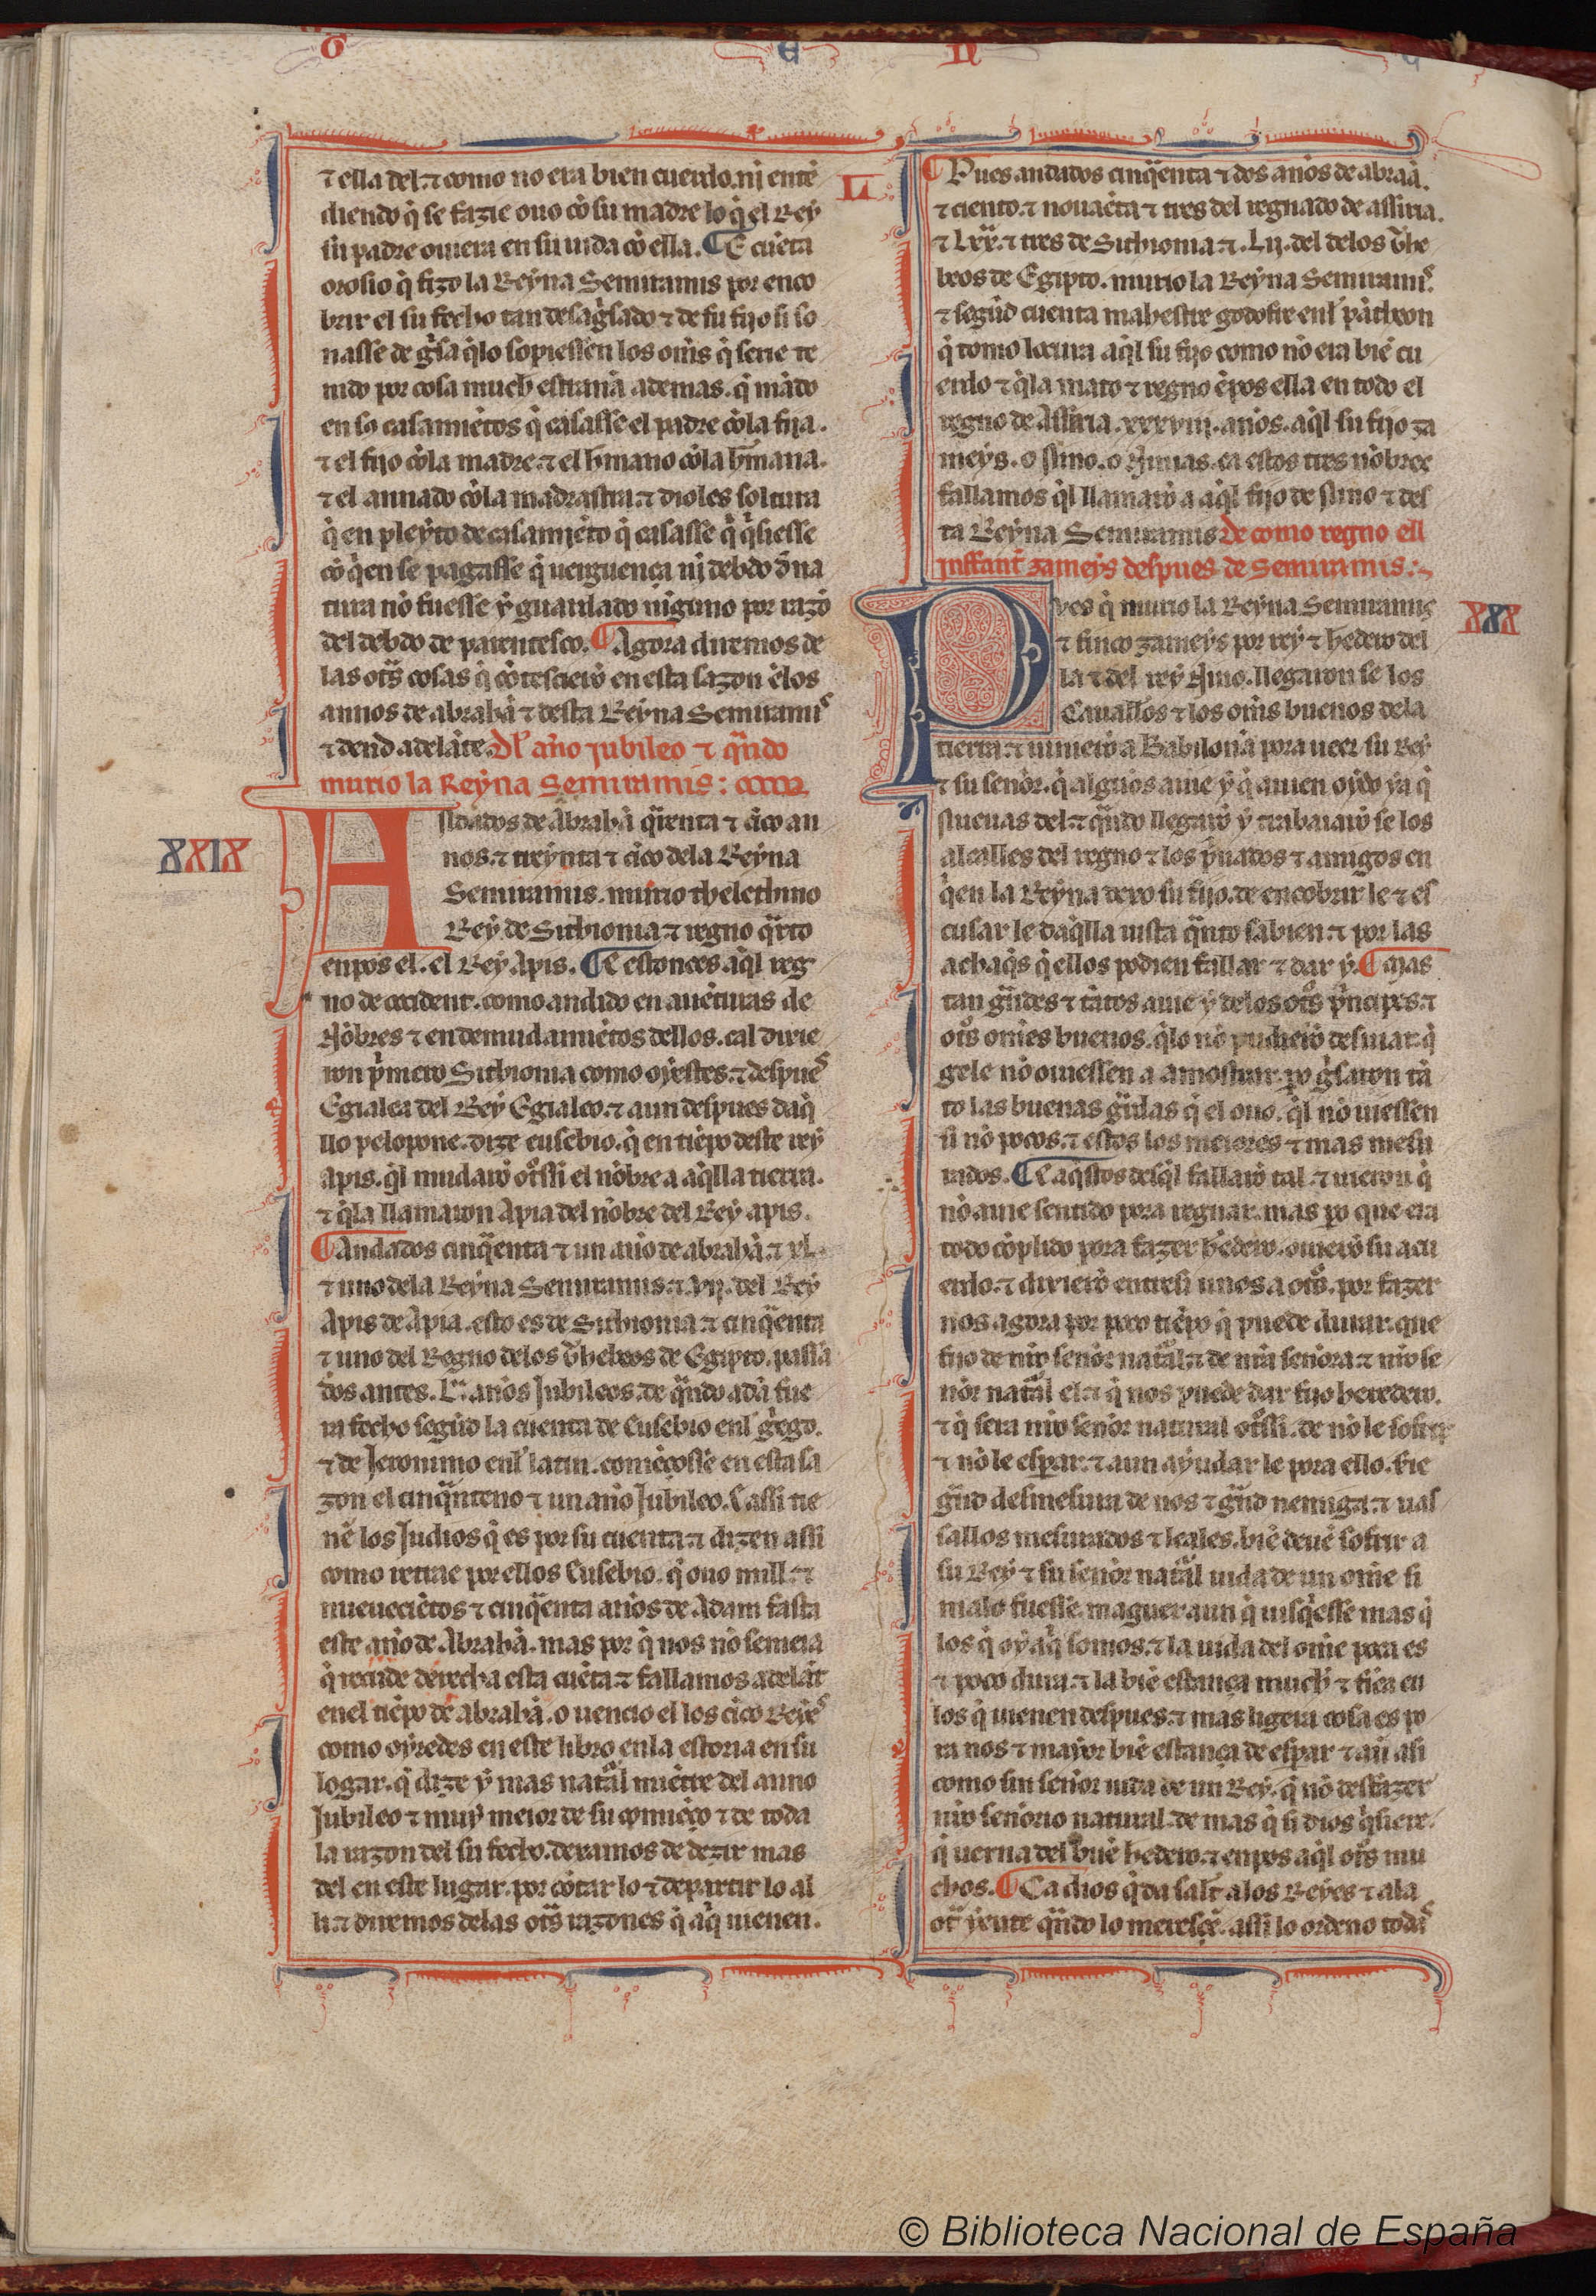 G E N E
⁊ ella del. ⁊ como no era bien cuerdo. nj entē
diendo q̇ se fazie ouo cō su madre lo q̇ el Rey
su padre ouiera en su uida cō ella. ¶ E cuēta
orosio q̇ fizo la Reyna Semiramis por enco
brir el su fecho tan desaguisado ⁊ de su fijo si so
nasse de gisa q̇lo sopiessen los oms̄ q̇ serie te
nido por cosa much estranna ademas. q̇ mādo
en so casamiētos q̇ casasse el padre cōla fija.
⁊ el fijo cōla madre. ⁊ el h̄mano cōla h̄mana.
⁊ el annado cōla madrastra. ⁊ dioles soltura
q̇ en pleyto de casamiēto q̇ casasse q̇ q̇siesse
cō q̇en se pagasse q̇ uerguença nj debdo d̄ na
tura nō fuesse y guardado niguno por razō
del debdo de parentesco. ¶ Agora diremos de
las otr̄s cosas q̇ cōtesciērō en esta sazon ēlos
annos de abrahā ⁊ desta Reyna Semiramis
⁊ dend adelāte. Dl̄ año jubileo ⁊ qn̄do
murio la Reyna Semiramis:
XXIX
Andados de Abrahā q̇renta ⁊ cīco an
nos. ⁊ treynta ⁊ cīco dela Reyna
Semiramis. murio thelethino
Rey de Sithionia. ⁊ regno q̇rto
enpos el. el Rey Apis. ¶ E estonces aq̇l reg
no de occident. como andido en auēturas de
Nōbres ⁊ en demudamiētos dellos. cal dixie
ron ṗmero Sithionia como oyestes. ⁊ despues
Egialea del Rey Egialeo. ⁊ aun despues daq̇
llo pelopone. dize eusebio. q̇ en tiēpo deste rey
apis. q̇l mudarō otrossi el nōbre a aq̇lla tierra.
⁊ q̇la llamaron Apia del nōbre del Rey apis.
¶ Andados cinq̇enta ⁊ un año de abrahā. ⁊ xl.
⁊ uno dela Reyna Semiramis. ⁊ vij. del Rey
Apis de Apia. esto es de Sithionia. ⁊ cinq̇enta
⁊ uno del Regno delos Thebeos de Egipto. passa
dos antes. L. años Jubileos. de qn̄do adā fue
ra fecho segūd la cuenta de Eusebio enl̄ gēgo.
⁊ de Jeronimo enl̄ latin. comēçosse en esta sa
zon el cinq̇nteno ⁊ un año Jubileo. Ca assi tie
nē los Judios q̇ es por su cuenta. ⁊ dizen assi
como retrae por ellos Eusebio. q̇ ouo mill. ⁊
nueueciētos ⁊ cinq̇enta años de Adam fasta
este año de Abrahā. mas por q̇ nos nō semeia
q̇ recude derecha esta cuēta. ⁊ fallamos adelāt
enel tiēpo de abrahā. o uencio el los cīco Reyes
como oyredes en este libro enla estoria en su
logar. q̇ dize y mas natūl miētre del anno
Jubileo ⁊ muy meior de su comiēço ⁊ de toda
la razon del su fecho. dexamos de dezir mas
del en este lugar. por cōtar lo ⁊ departir lo al
li. ⁊ diremos delas otr̄s razones q̇ aq̇ uienen.
L
¶ Pues andados cinq̇enta ⁊ dos años de abraā.
⁊ ciento. ⁊ nouaēta ⁊ tres del regnado de assiria.
⁊ Lxx. ⁊ tres de Sithionia. ⁊. Lij. del delos The
beos de Egipto. murio la Reyna Semiramis.
⁊ segūd cuenta mahestre godofre enl̄ pātheon
q̇ tomo locura aq̇l su fijo como nō era biē cu
erdo ⁊ q̇la mato ⁊ regno ēpos ella en todo el
regno de Assiria. xxxviij. años. aq̇l su fijo za
meys. o nino. o Ninias. ca estos tres nōbres
fallamos q̇l llamarō a aq̇l fijo de nino ⁊ des
ta Reyna Semiramis De como regno ell
Jnffant zameys despues de Semiramis:
XXX
Pues q̇ murio la Reyna Semiramis
⁊ finco zameys por rey ⁊ h̄edero del
la ⁊ del rey Nino. llegaron se los
Caualłos ⁊ los oms̄ buenos dela
tierra. ⁊ uinierō a Babilonā pora ueer su Rey
⁊ su señor. q̇ algūos auie y q̇ auien oydo ya q̇
nueuas del. ⁊ qn̄do llegarō y trabaiarō se los
alcalles del regno ⁊ los ṗuados ⁊ amigos en
q̇en la Reyna dexo su fijo. de encobrir le ⁊ es
cusar le daq̇lla uista q̇nto sabien. ⁊ por las
achaq̇s q̇ ellos podien fallar ⁊ dar y. ¶ Mas
tan gn̄des ⁊ tātos auie y delos otr̄s ṗncipes. ⁊
otr̄s omēs buenos. q̇lo nō pudierō desuiar. q̇
gele nō ouiessen a amostrar. po gisaron tā
to las buenas gardas q̇ el ouo. q̇l nō uiessen
si nō pocos. ⁊ estos los meiores ⁊ mas mesu
rados. ¶ E aq̇stos desq̇l fallarō tal. ⁊ uieron q̇
nō auie sentido pora regnar. mas po que era
todo cōplido pora fazer h̄edero. ouierō su acu
erdo. ⁊ dixierō entressi unos a otr̄s. por fazer
nos agora por poco tiēpo q̇ puede durar. que
fijo de nr̄o señor natūl. ⁊ de nr̄a señora. ⁊ nr̄o se
ñor natūl el. ⁊ q̇ nos puede dar fijo heredero.
⁊ q̇ sera nr̄o señor natural otrossi. de nō le sofrir
⁊ nō le esperar. ⁊ aun ayudar le pora ello. sie
gn̄d desmesura de nos ⁊ gn̄d nemiga. ⁊ uas
sallos mesurados ⁊ leales. biē deuē sofrir a
su Rey ⁊ su señor natūl uida de un ome si
malo fuesse. maguer aun q̇ uisq̇esse mas q̇
los q̇ oy aq̇ somos. ⁊ la uida del ome poca es
⁊ poco dura. ⁊ la biē estança much ⁊ fica en
los q̇ uienen despues. ⁊ mas ligera cosa es po
ra nos ⁊ mayor biē estança de esperar ⁊ aū assi
como sin señor uida de un Rey. q̇ nō desfazer
nr̄o señorio natural. de mas q̇ si dios q̇siere.
q̇ uerna del buē hedero. ⁊ enpos aq̇l otr̄s mu
chos. ¶ Ca dios q̇ da salut alos Reyes ⁊ ala
otr̄ yente qn̄do lo merescē. assi lo ordeno todas
© Biblioteca Nacional de España